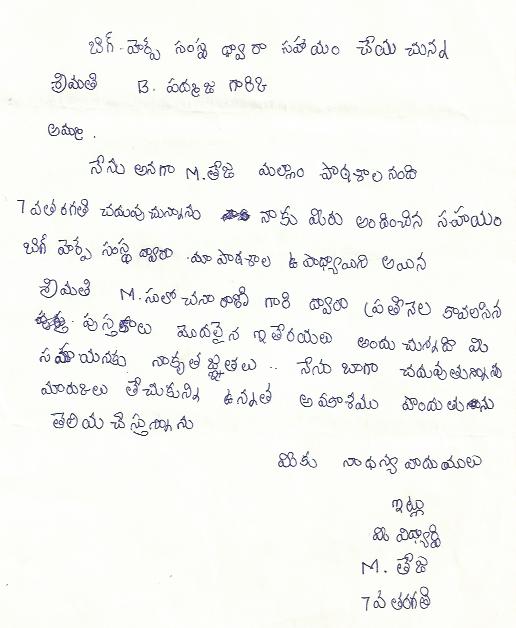 బిగ్ హెల్ప్ సంస్థ ద్వారా సహాయం చేయ చున్న
శ్రీమతి B. పద్మజ గారికి
అమ్మ.
నేను అనగా M. తేజ మల్లాం పాఠశాల నందు
7వతరగతి చదువుచున్నాను నాకు మీరు అందించిన సహాయం
బిగ్ హెల్ప్ సంస్థ ద్వారా మా పాఠశాల ఉపాధ్యాయిని అయిన
శ్రీమతి M. సులోచనారాణి గారి ద్వారా ప్రతినెల కావలసిన
పుస్తకాలు మొదలైన ఇతరయలు అందు చున్నది మీ
సహాయనకు నాకృతజ్ఞతలు .. నేను బాగా చదువుతున్నాను
మారుకులు తెచుకున్ని ఉన్నత అవకాశము పొందుతానను
తెలియ చేస్తున్నాను
మీకు నాధన్యవాదములు
ఇట్లు
మీ విద్యార్థి
M. తేజ
7వ తరగతి